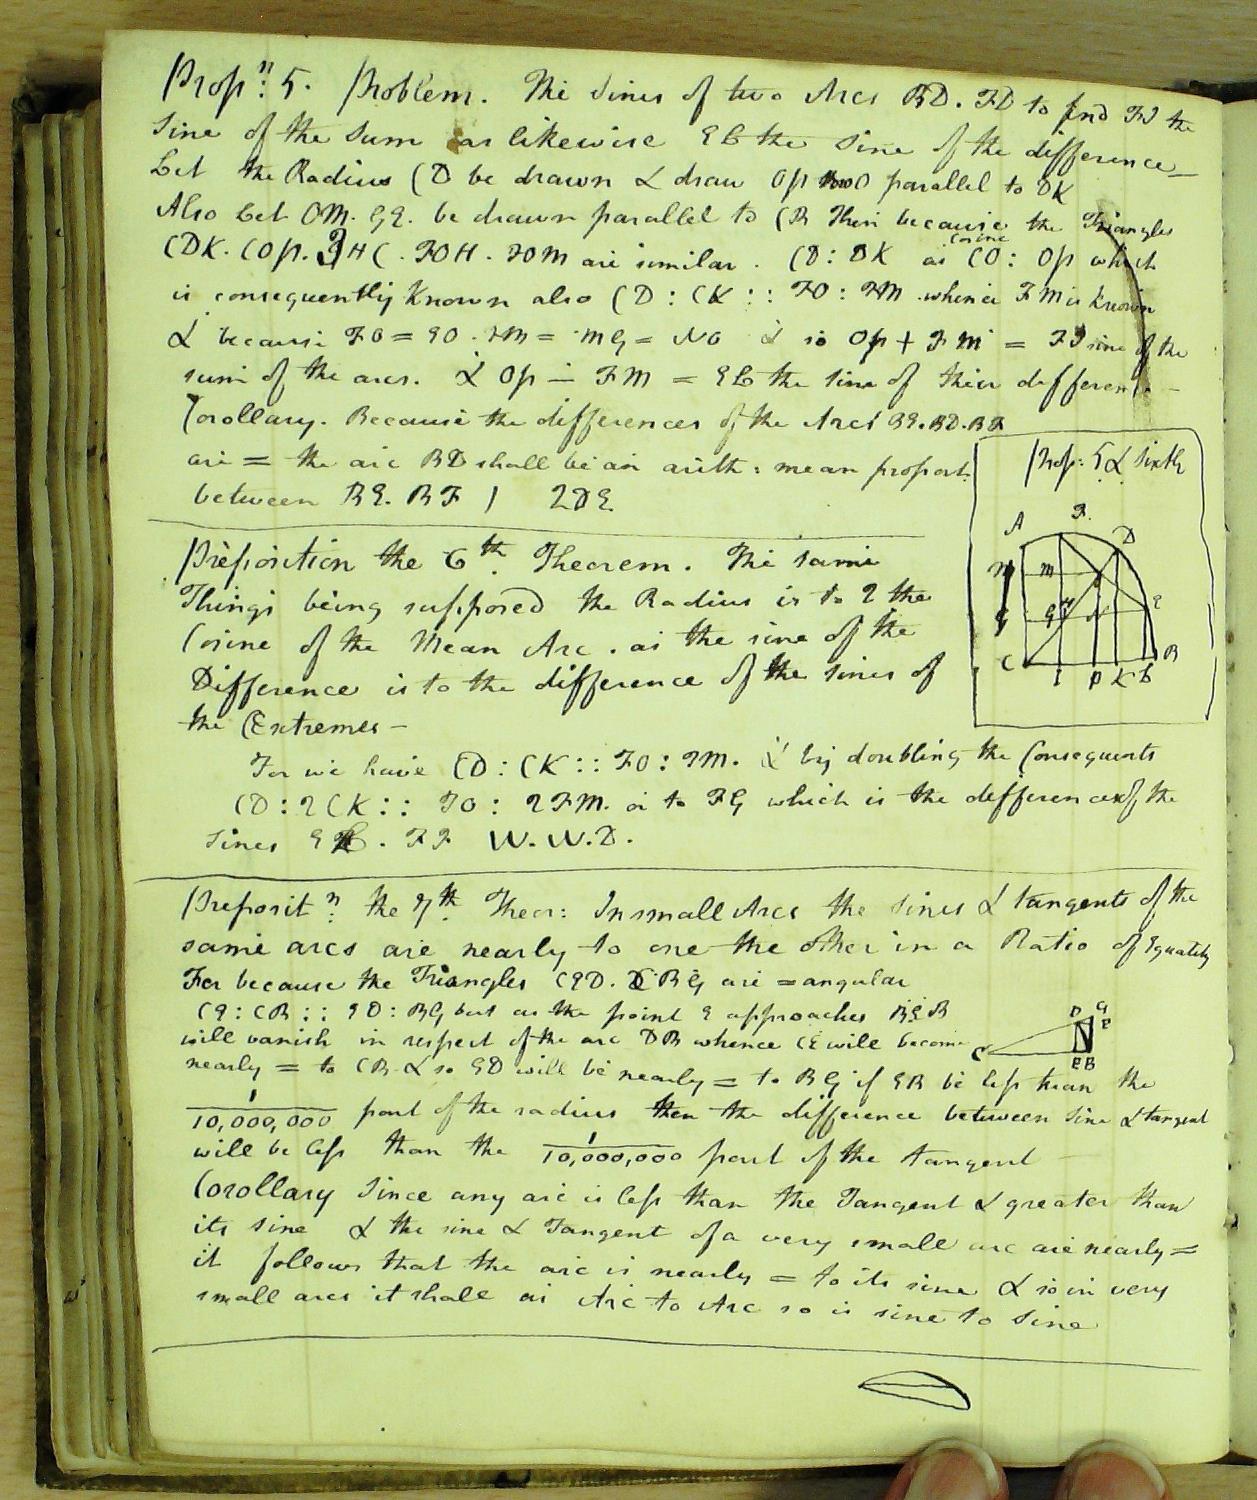 Prop:n 5. Problem. The Sines of two Arcs BD. FD to find FI the
Sine of the Sum as likewise EL the Sine of the difference
Let the Radius CD be drawn & draw Op parallel to DK
Also Let OM. GE. be drawn parallel to CB Then because the Triangles
CDK. COp. IHC. FOH. FOM are similar. CD: DK as Cosine CO: Op which
is consequently Known also CD: CK:: FO: FM whence FM is Known
& because FO = EO. FM = MG = NO & so Op + FM = FI sine of the
sum of the arcs. & Op - FM = EL the Sine of their difference
Corollary. Because the differences of the Arcs BE. BD. BF
are = the arc BD shall be an arith: mean proport.
between BE. BF / 2DE
Proposition the 6th. Theorem. The same
Things being supposed the Radius is to 2 the
Cosine of the Mean Arc. as the sine of the
Difference is to the difference of the sines of
the Extremes -
For we have CD: CK:: FO: FM. & by doubling the Consequents
CD: 2CK:: FO: 2FM. or to FG which is the difference of the
sines EL. FI W.W.D.
Proposit:n the 7th. Theor: In small Arcs the sines & tangents of the
same arcs are nearly to one the other in a Ratio of Equality
For because the Triangles CED. CBG are = angular
CE: CB:: ED: BG but as the point E approaches B EB
will vanish in respect of the arc DB whence CE will become
nearly = to CB & so ED will be nearly = to BG if EB be less than the
1/10,000,000 part of the radius then the difference between Sine & tangent
will be less than the 1/10,000,000 part of the tangent
Corollary Since any arc is less than the Tangent & greater than
its sine & the sine & Tangent of a very small arc are nearly =
it follows that the arc is nearly = to its sine & so in very
small arcs it shall as Arc to Arc so is sine to Sine
Prop: 5 & sixth
A F D
M m
G N E
C I P K L B
D G
C E B